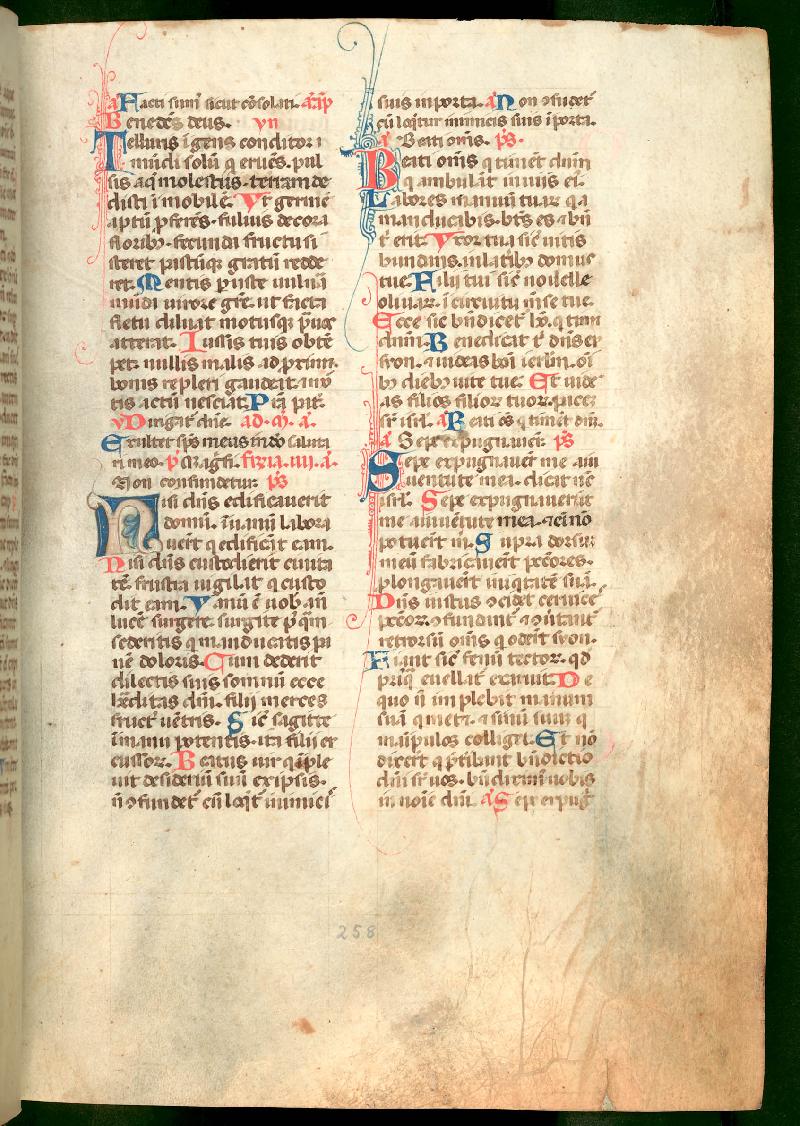 a Facti sum᷒ sicut cōsolati. a. ip̄
Benedēs deus. yn
Telluris īgens conditor ı
mūdi solū q eruēs. pul
sis aq̄ molestus. terram de
disti īmobilē. Vt germē
aptū ꝓferēs. fuluis decora
floribꝫ. fecunda fructu si
steret pastūqꝫ gratū redde
ret. Mentis ꝑuste uulna
mūdi uirore gr̄e. ut facta
fletu diluat motusqꝫ p̄uos
atterat. Iussis tuis obtē
pet. nullis malis ad ꝓxim.
bonis repleri gaudeat. mor
tis actū nesciat. P̄ia pat̄.
v Dirigat̄ dn̄e. ad. m̄. a.
Exultet sp̄s meus in deo saluta
ri meo. p̄s. Magn̄. feria. iiii. a.
Non confundetur. ps
Nisi dn̄s edificauerit
domū. ī uanū labora
uerūt q edificāt eam.
Nisi dn̄s custodierit ciuita
tē. frustra uigilat q custo
dit eam. Vanū ē uob̄ an̄
lucē surgere. surgite p̄ q̄m
sederitis q manducatis pa
nē doloris. Cum dederit
dilectis suis somnū ecce
hēditas dn̄i. filii merces
fruct᷒ uētris. Sic̄ sagitte
ī manu potentis. ita filii ex
cussoꝝ. Beatus uir q īple
uit desideriū suū ex ipsis.
n̄ ꝯfundet᷒ cū loq̄t᷒ inimicis
suis in porta. a Non ꝯfūdet᷒
cū loq̄tur inimicis suis ī porta.
a Beati om̄s. ps.
Beati om̄s q timēt dn̄m
q ambulāt in uiis ei᷒.
Labores manuū tuaꝝ q̄a
manducabis. bt̄s es ⁊ bn̄
t᷒ erit. Vxor tua sic̄ uitis
bundans. ī lat̄ibꝫ domus
tue. Filii tui sic̄ nouelle
oliuaꝝ. ī circuitu mēse tue.
Ecce sic bn̄dicet᷒ hō. q tim
dn̄m. Benedicat t᷒ dn̄s ex
syon. ⁊ uideas bōa ierlm̄. oī
bꝫ diebꝫ uite tue. Et uide
as filios filioꝝ tuoꝝ. pacē
sr̄ isrl̄. a Beati oēs q timēt dn̄.
a Sepe expugnauer̄t. ps
Sepe expugnauer̄t me a iu
uentute mea. dicat nc̄
isrl̄. Sepe expugnauerūt
me a iuuētute mea. ⁊ eī nō
potuer̄t m̄. Supra dorsū
meū fabricauer̄t pctōres.
ꝓlongauer̄t iniq̄tatē suā.
Dn̄s iustus ꝯcidet ceruices
pctōꝝ. ꝯfundant᷒ ⁊ ꝯu̇tant᷒
retrorsū om̄s q oder̄t syon.
Fiant sic̄ fenū tectoꝝ. qd̄
priq̄ euellat᷒ exaruit. De
quo n̄ impleuit manum
suā q metit. ⁊ sinū suū q
manipulos colliget. Et nō
dixer̄t q p̄t̄ibant bn̄dictio
dn̄i sr̄ uos. bn̄diximꝰ uobis
in noīe dn̄i. a Sepe expug᷒
258